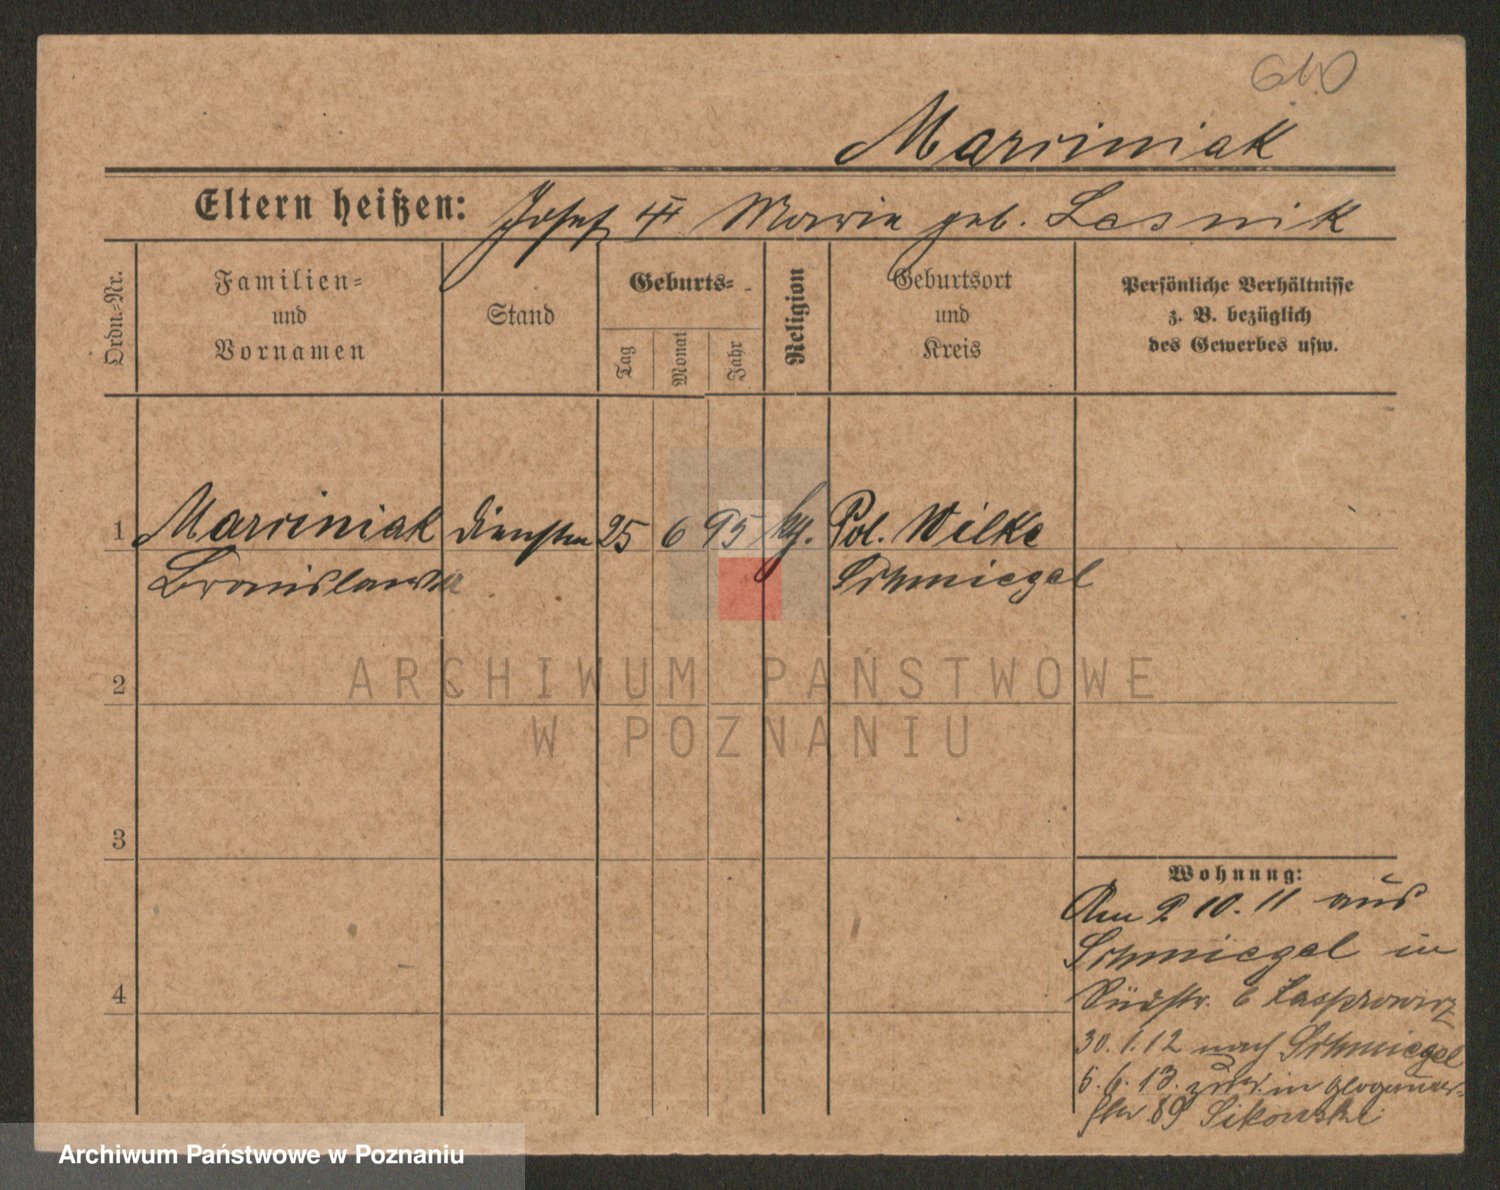 610
Marciniak
Eltern heißen: Josef Maria geb. Lesnik
Ordn.-Nr.
Familien-
und
Vornamen
Stand
Geburts-
Tag
Monat
Jahr
Religion
Geburtsort
und
Kreis
Persönliche Verhältnisse
z. B. bezüglich
des Gewerbes usw.
1 Marciniak 25 6 95 kg. Pol. Wilke
Bronislawa Schmiegel
2
3
4
Wohnung:
Am 2 10. 11 aus
Schmiegel in
Südstr. 6 Kasprowicz
30. 1. 12 nach Schmiegel
5. 6. 13. zurück in Glogauer-
str 89 Sikorski
ARCHIWUM PAŃSTWOWE
W POZNANIU
Archiwum Państwowe w Poznaniu